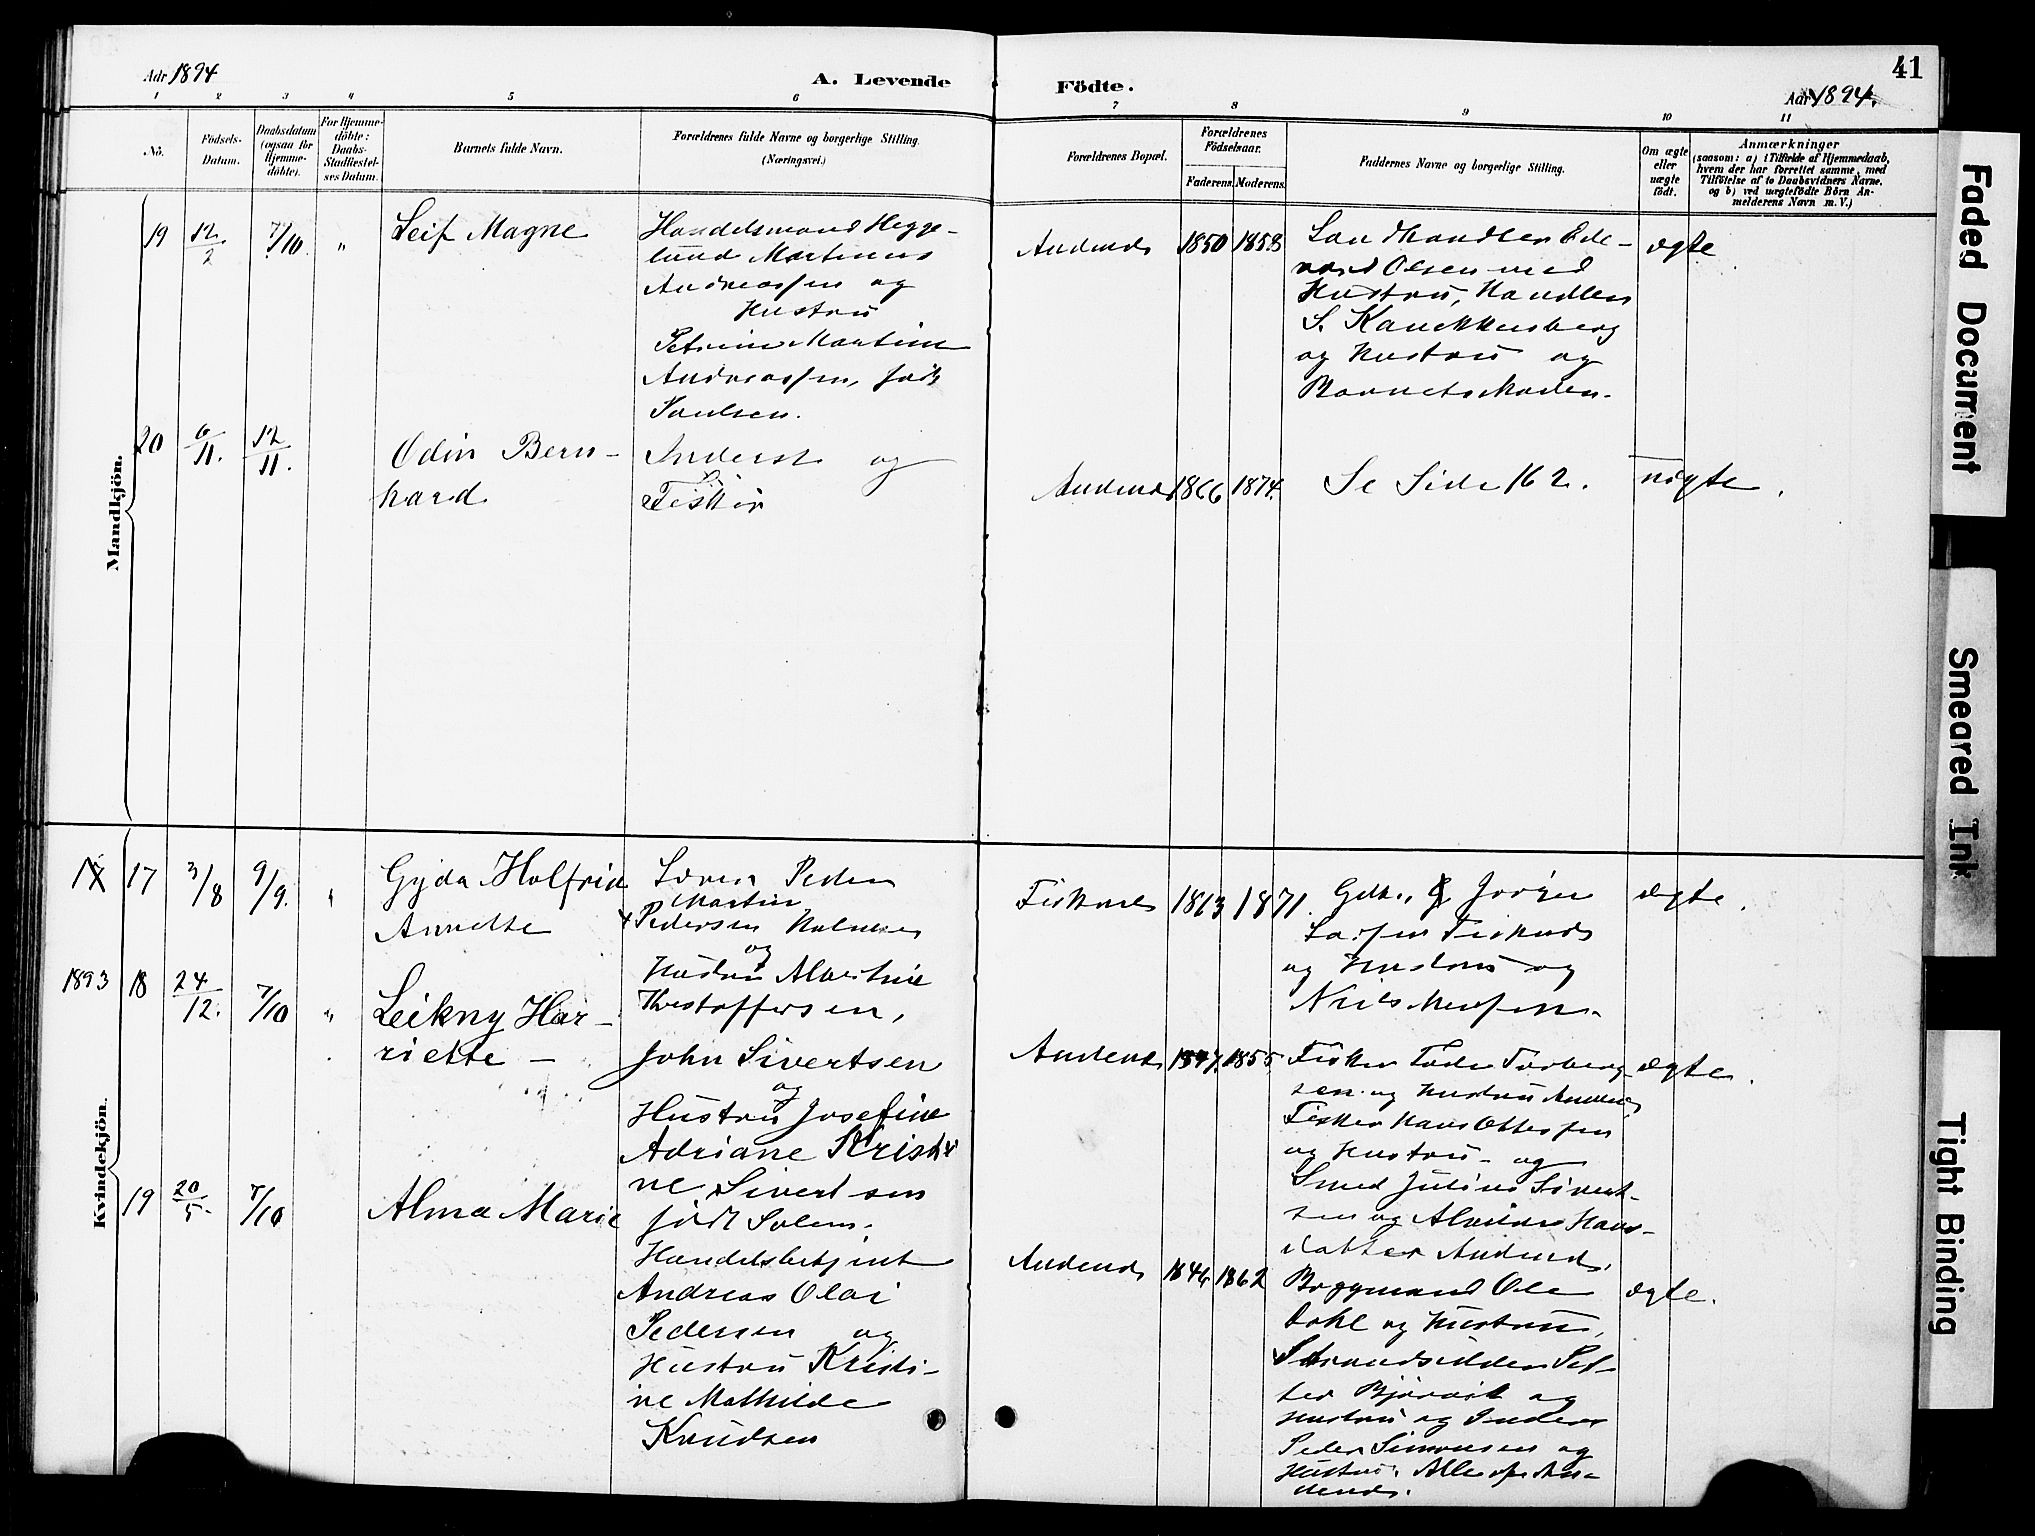 Adr 1894
A. Levende
Födte.
Aar 1894.
41
1 2 3 4 5 6 7 8 9 10 11
No.
Födsels-
Datum.
Daabsdatum
(ogsaa for
Hjemme-
döbte).
For Hjemme-
döbte:
Daabs-
Stadfæstel-
ses Datum.
Barnets fulde Navn.
Forældrenes fulde Navne og borgerlige Stilling.
(Næringsvei.)
Forældrenes Bopæl.
Forældrenes
Födselsaar.
Faderens. Moderens.
Faddernes Navne og borgerlige Stilling.
Om ægte
eller
uægte
födt.
Anmærkninger
(saasom: a) i Tilfælde af Hjemmedaab,
hvem der har forrettet samme, med
Tilföielse af to Daabsvidners Navne,
og b) ved uægtefödte Börn An-
melderens Navn m. V.)
Mandkjön.
19 12/2 7/10 "
Leif Magne
Handelsmand Hegge-
lund Martinus
Andreassen og
Hustru
Petrine Martine
Andreassen, født
Paulsen.
Andenes 1850 1858
Landhandler Ed-
vard Olsen med
Hustru, Handler
og Hustru og
Barnets Moder.
ægte
20 6/11. 12/11.
Odin Bern-
hard
Inderst og
Fisker
Andenes 1866 1874.
Se Side 162.
uægte.
Kvindekjön.
17 3/8 9/9. "
Gyda Holfrid
Annette
Søren Peder
Martin
Pedersen
og
Hustru Albertine
Kristoffersen,
Fiskenes 1863 1871.
Gdbr. Jørgen
Larsen Fiskenes
og Hustru og
Nils
ægte.
1893 18 24/12. 7/10 "
Leikny Har-
riette —
John Sivertsen
og
Hustru Josefine
Adriane Kristi
ne Sivertsen
født Solem.
Andenes 1847. 1855.
Fisker Peder Torberg-
sen og Hustru Andenes
Fisker Hans Ottersen
og Hustru - og
Smed Julius Sivert-
sen og Hans-
datter Andenes.
ægte.
19 20/5. 7/10
Alma Marie
Handelsbetjent
Andreas Olai
Pedersen og
Hustru Kristi-
ne Mathilde
Knudsen
Andenes 1846 1862
Byggmand Ole
Dahl og Hustru,
Strandsidder Pet-
ter Bjørvik og
Hustru og Inderst
Peder Simonsen og
Hustru. Alle af An-
denes.
ægte.
Faded Document
Smeared Ink
Tight Binding